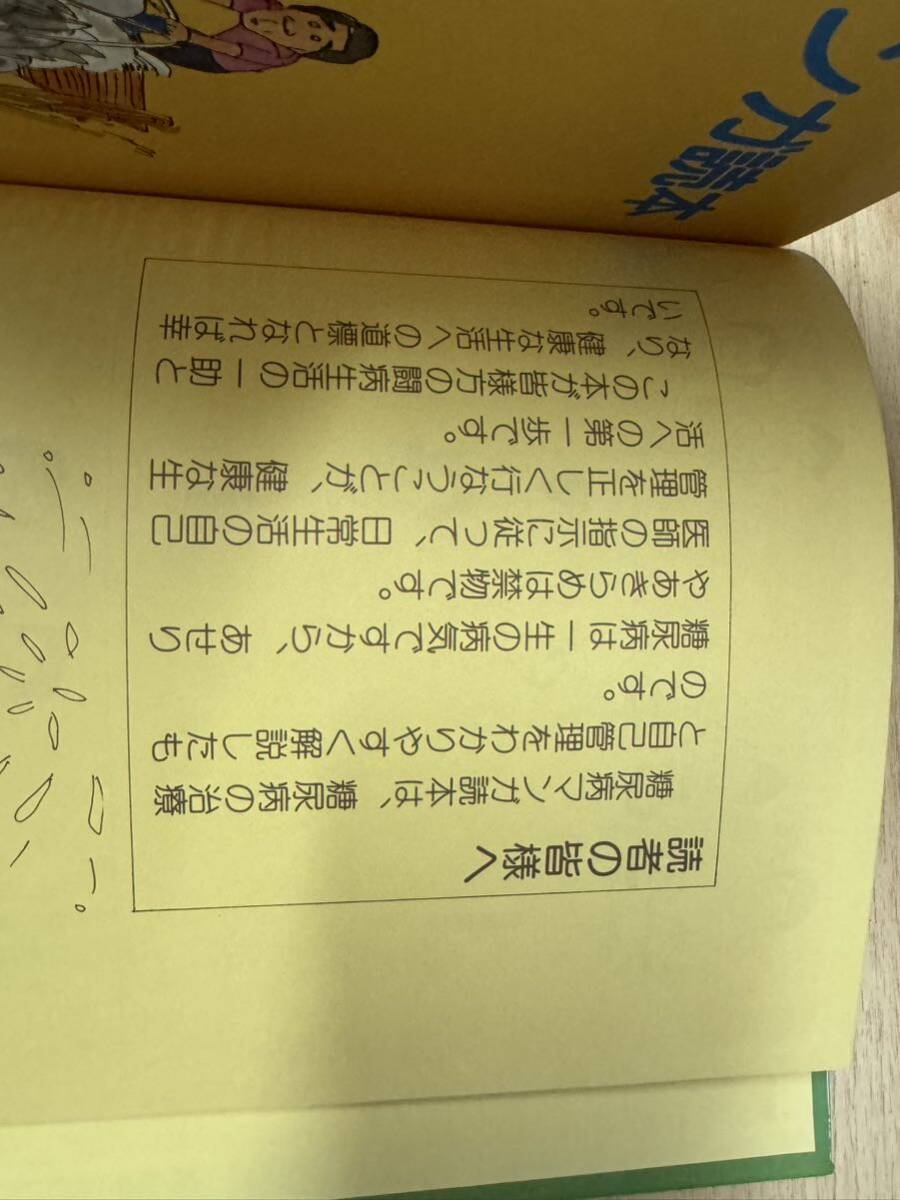 ンガ読本
読者の皆様へ
糖尿病マンガ読本は、糖尿病の治療
と自己管理をわかりやすく解説したも
のです。
糖尿病は一生の病気ですから、あせり
やあきらめは禁物です。
医師の指示に従って、日常生活の自己
管理を正しく行なうことが、健康な生
活への第一歩です。
この本が皆様方の闘病生活の一助と
なり、健康な生活への道標となれば幸
いです。